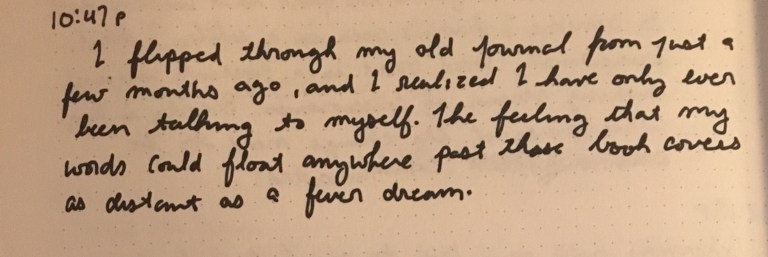 10:47 P
I flipped through my old journal from just a
few months ago, and I realized I have only ever
been talking to myself. The feeling that my
words could float anywhere past those book covers
as distant as a fever dream.